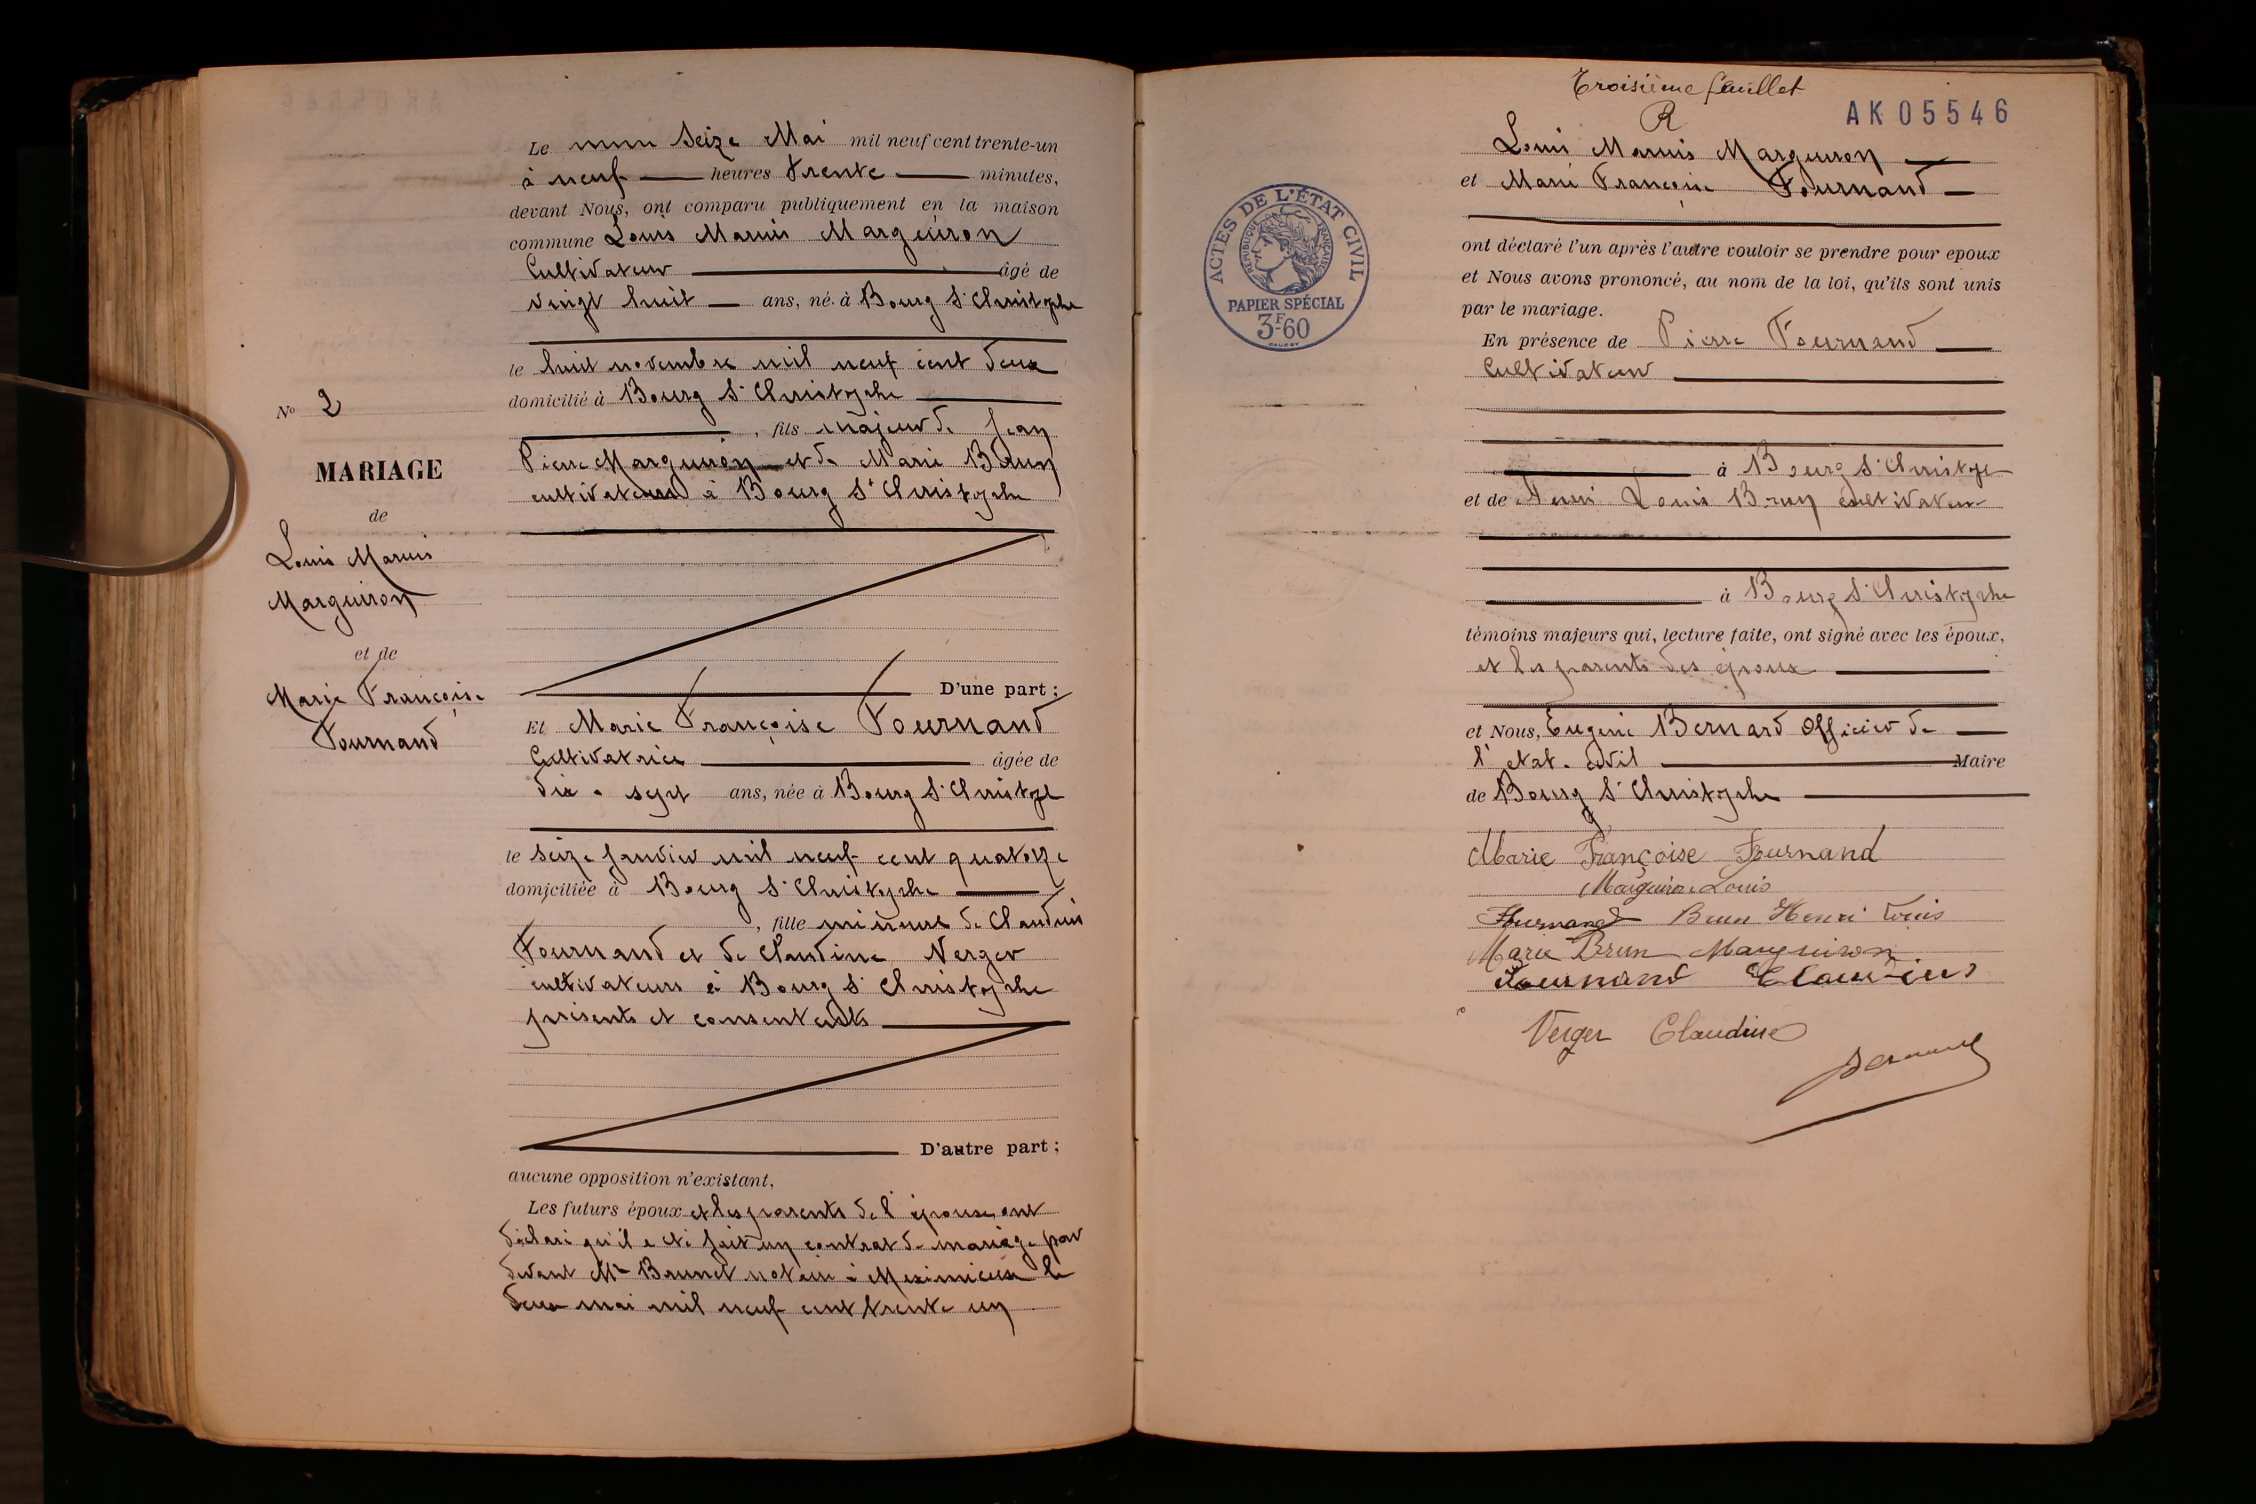 Le Seize Mai mil neuf cent trente-un
à neuf heures trente minutes,
devant Nous, ont comparu publiquement en la maison
commune Louis Marius Marguiron
Cultivateur âgé de
vingt huit ans, né à Bourg St Christophe
le huit novembre mil neuf cent deux
domicilié à Bourg St Christophe
, fils majeur de Jean
Pierre Marguiron et de Marie Brun
cultivateurs à Bourg St Christophe
No 2
MARIAGE
de
Louis Marius
Marguiron
et de
Marie Françoise
Fournand
D'une part ;
Et Marie Françoise Fournand
Cultivatrice âgée de
dix-sept ans, née à Bourg St Christophe
le seize janvier mil neuf cent quatorze
domiciliée à Bourg St Christophe
, fille mineure de Claudius
Fournand et de Claudine Verger
cultivateurs à Bourg St Christophe
présents et consentants
D'autre part ;
aucune opposition n'existant,
Les futurs époux et les parents de l'épouse ont
déclaré qu'il a été fait un contrat de mariage par
devant Me notaire à Meximieux le
deux mai mil neuf cent trente un
Troisième feuillet
R
AK 05546
Louis Marius Marguiron
et Marie Françoise Fournand
ont déclaré l'un après l'autre vouloir se prendre pour epoux
et Nous avons prononcé, au nom de la loi, qu'ils sont unis
par le mariage.
En présence de Pierre Fournand
Cultivateur
à Bourg St Christophe
et de Henri Louis Brun cultivateur
à Bourg St Christophe
témoins majeurs qui, lecture faite, ont signé avec les époux,
et les parents des époux
et Nous, Eugène Bernard Officier de
l'etat-civil Maire
de Bourg St Christophe
Marie Françoise Fournand
Marguiron Louis
Fournand Brun Henri Louis
Marie Brun Marguiron
Fournand Claudius
Verger Claudine
Bernard
ACTES DE L'ÉTAT CIVIL
RÉPUBLIQUE FRANÇAISE
PAPIER SPÉCIAL
3F60